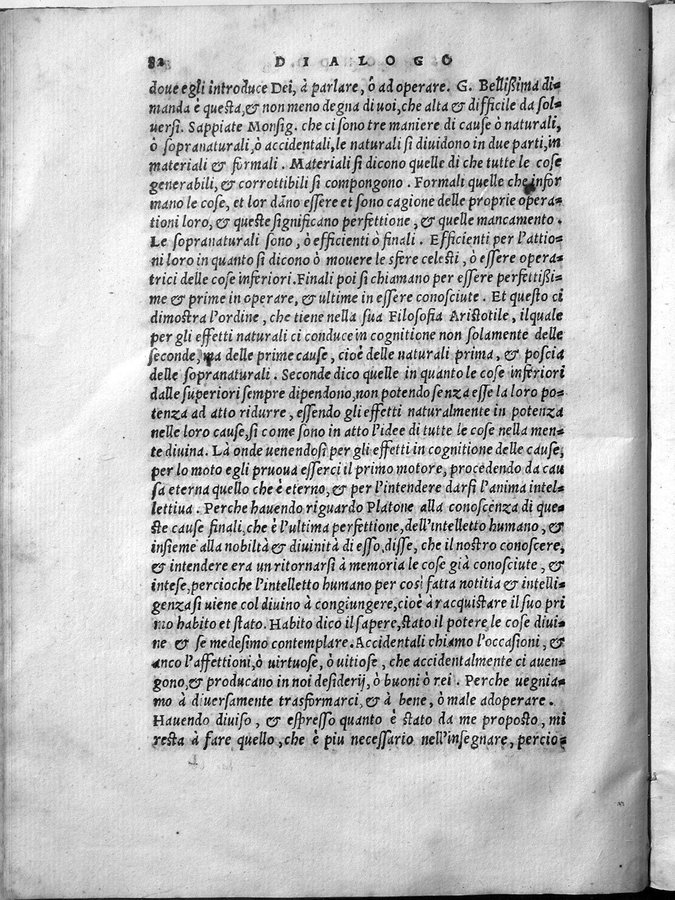 82 DIALOGO
doue egli introduce Dei, à parlare, ò ad operare. G. Bellißima di=
manda è questa, & non meno degna di uoi, che alta & difficile da sol=
uersi. Sappiate Monsig. che ci sono tre maniere di cause ò naturali,
ò sopranaturali, ò accidentali, le naturali si diuidono in due parti, in
materiali & formali. Materiali si dicono quelle di che tutte le cose
generabili, & corrottibili si compongono. Formali quelle che infor
mano le cose, et lor dãno essere et sono cagione delle proprie opera=
tioni loro, & queste significano perfettione, & quelle mancamento.
Le sopranaturali sono, ò efficienti ò finali. Efficienti per l'attio=
ni loro in quanto si dicono ò mouere le sfere celesti, ò essere opera=
trici delle cose inferiori. Finali poi si chiamano per essere perfettißi=
me & prime in operare, & ultime in essere conosciute. Et questo ci
dimostra l'ordine, che tiene nella sua Filosofia Aristotile, ilquale
per gli effetti naturali ci conduce in cognitione non solamente delle
seconde, ma delle prime cause, cioè delle naturali prima, & poscia
delle sopranaturali. Seconde dico quelle in quanto le cose inferiori
dalle superiori sempre dipendono, non potendo senza esse la loro po=
tenza ad atto ridurre, essendo gli effetti naturalmente in potenza
nelle loro cause, si come sono in atto l'idee di tutte le cose nella men=
te diuina. Là onde uenendosi per gli effetti in cognitione delle cause,
per lo moto egli pruoua esserci il primo motore, procedendo da cau
sa eterna quello che è eterno, & per l'intendere darsi l'anima intel=
lettiua. Perche hauendo riguardo Platone alla conoscenza di que=
ste cause finali, che è l'ultima perfettione, dell'intelletto humano, &
insieme alla nobiltà & diuinità di esso, disse, che il nostro conoscere,
& intendere era un ritornarsi à memoria le cose già conosciute, &
intese, percioche l'intelletto humano per così fatta notitia & intelli=
genza si uiene col diuino à congiungere, cioè à racquistare il suo pri
mo habito et stato. Habito dico il sapere, stato il potere le cose diui=
ne & se medesimo contemplare. Accidentali chiamo l'occasioni, &
anco l'affettioni, ò uirtuose, ò uitiose, che accidentalmente ci auen=
gono, & producano in noi desiderij, ò buoni ò rei. Perche uegnia=
mo à diuersamente trasformarci, & à bene, ò male adoperare.
Hauendo diuiso, & espresso quanto è stato da me proposto, mi
resta à fare quello, che è piu necessario nell'insegnare, percio=